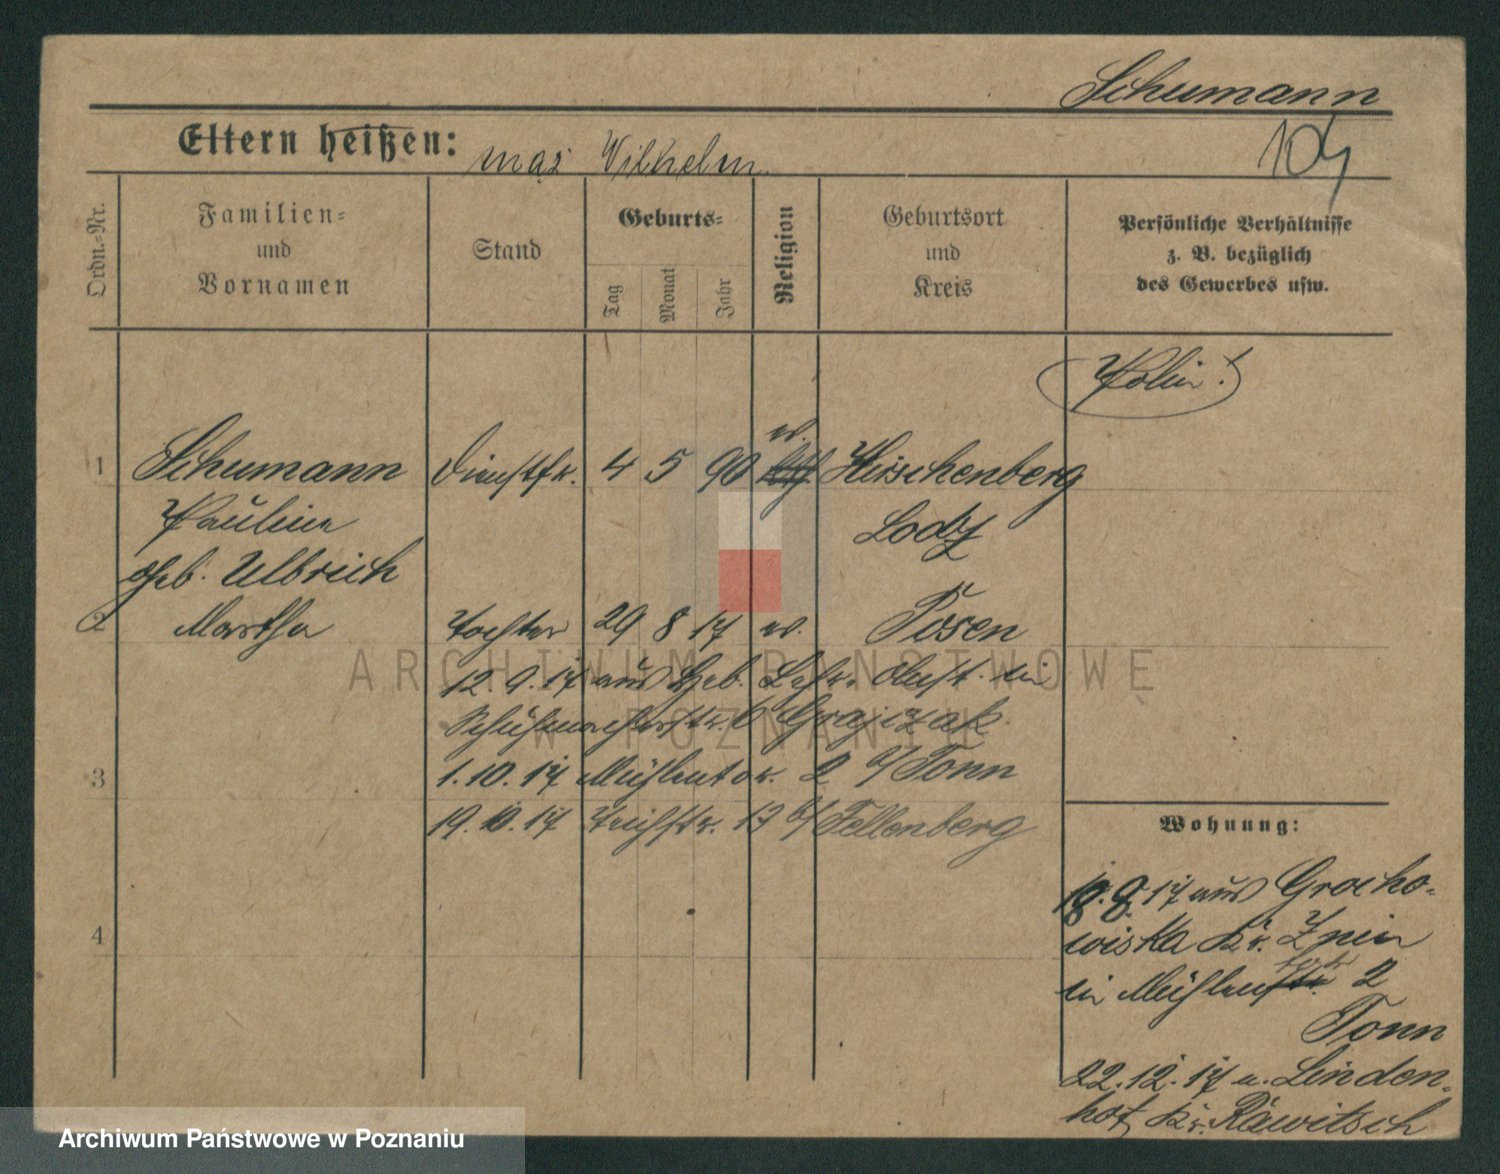 Schumann
Eltern heißen:
mąż Wilhelm.
104
Ordn.=Nr.
Familien=
und
Vornamen
Stand
Geburts=
Tag
Monat
Jahr
Religion
Geburtsort
und
Kreis
Persönliche Verhältnisse
z. B. bezüglich
des Gewerbes usw.
Polin!
1 Schumann Dienstfr. 4 5 90 ev. Hirschenberg
Pauline Lodz
geb. Ulbrich
2 Martha Tochter 29 8 17 ev. Posen
12.9.17 aus Geb. in
Schuhmacherstr. 6 Grajczak.
3 1.10.17 Mühlentor. 2 b/ Tonn
19.10.17 Teichstr. 13 b/ Fellenberg
Wohnung:
18.8.17 aus Grocho-
wiska Kr. Znin
in Mühlen 2
Tonn
4
22.12.17 n. Linden-
hof, Kr. Rawitsch
ARCHIWUM PAŃSTWOWE
W POZNANIU
Archiwum Państwowe w Poznaniu